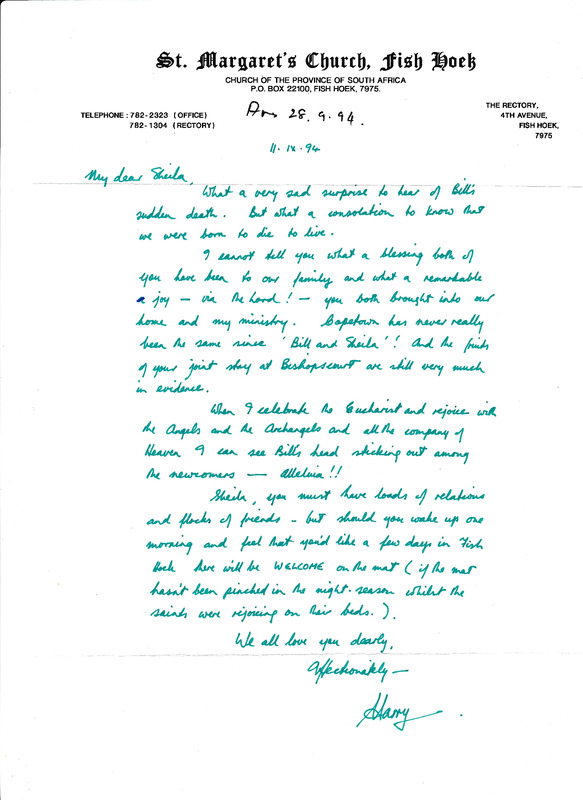 St. Margaret's Church, Fish Hoek
CHURCH OF THE PROVINCE OF SOUTH AFRICA
P.O. BOX 22100, FISH HOEK, 7975.
TELEPHONE : 782-2323 (OFFICE)
782-1304 (RECTORY)
THE RECTORY,
4TH AVENUE,
FISH HOEK,
7975
Ans 28.9.94.
11.ix.94
My dear Sheila,
What a very sad surprise to hear of Bill's
sudden death. But what a consolation to know that
we were born to die to live.
I cannot tell you what a blessing both of
you have been to our family and what a remarkable
a joy — via the hard! — you both brought into our
home and my ministry. Capetown has never really
been the same since 'Bill and Sheila'! And the fruits
of your joint stay at Bishopscourt are still very much
in evidence.
When I celebrate the Eucharist and rejoice with
the Angels and the Archangels and all the company of
Heaven I can see Bill's head sticking out among
the newcomers — alleluia!!
Sheila, you must have loads of relations
and flocks of friends - but should you wake up one
morning and feel that you'd like a few days in Fish
Hoek there will be WELCOME on the mat (if the mat
hasn't been pinched in the night-season whilst the
saints were rejoicing on their beds.).
We all love you dearly,
Affectionately —
Harry